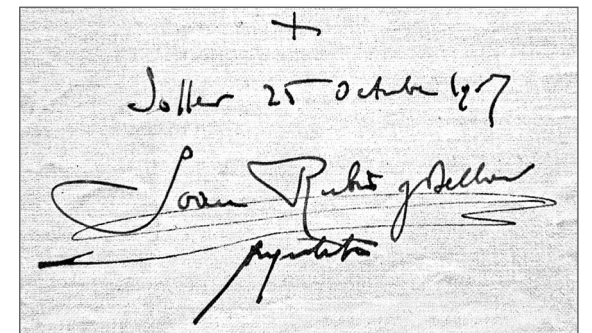 +
Soller 25 Octubre 1907
Joan Rubió y Bellver
arquitecto